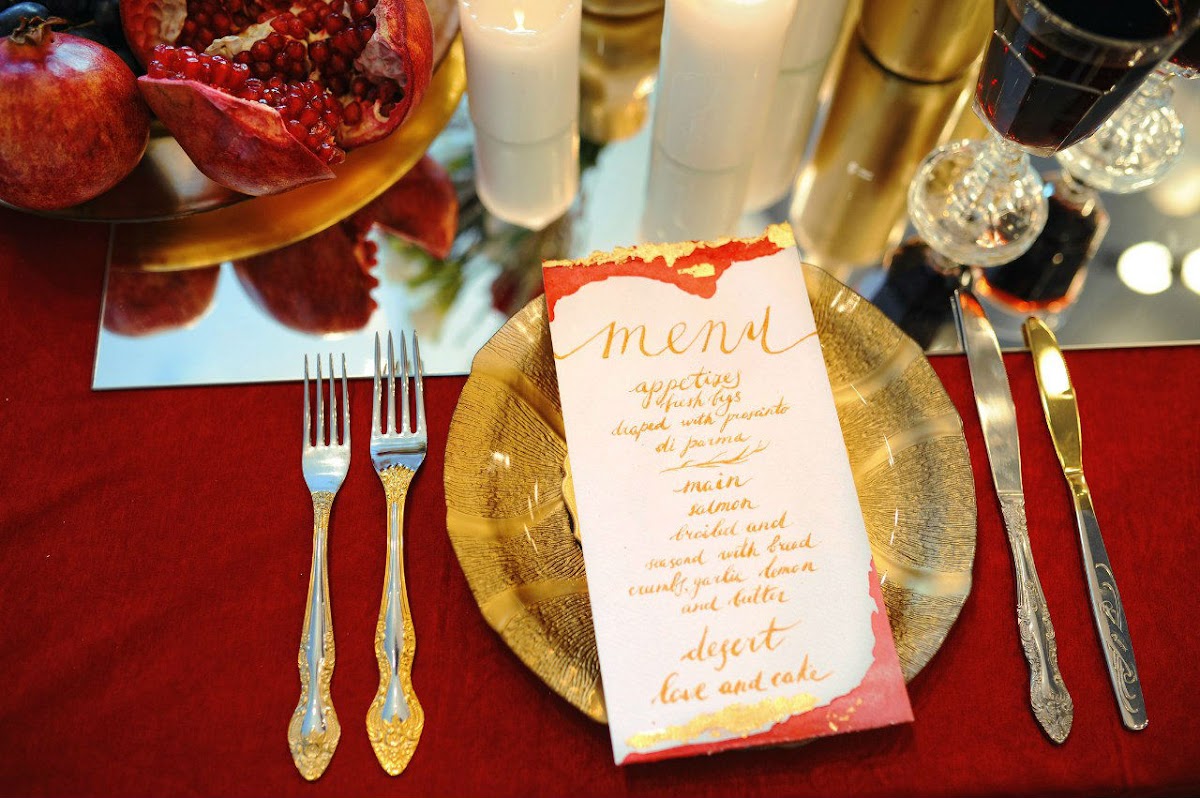 menu
appetizes
fresh figs
draped with proscinto
di parma
main
salmon
broiled and
seasond with bread
crumbs, garlic lemon
and butter
desert
love and cake